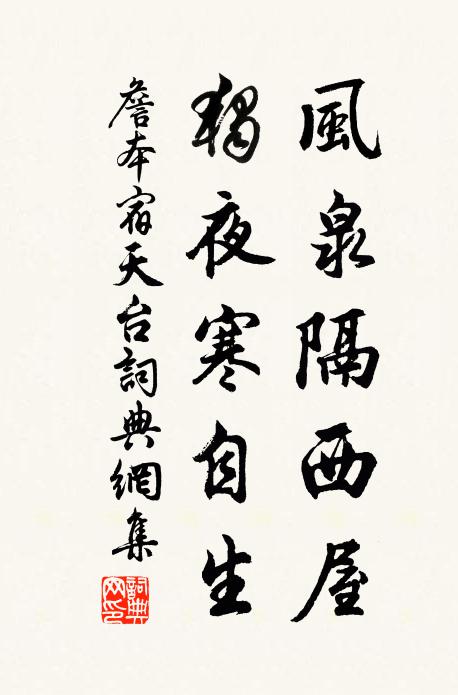 風泉隔西屋
獨夜寒自生
詹本宿天台詞典網集
詞典网印